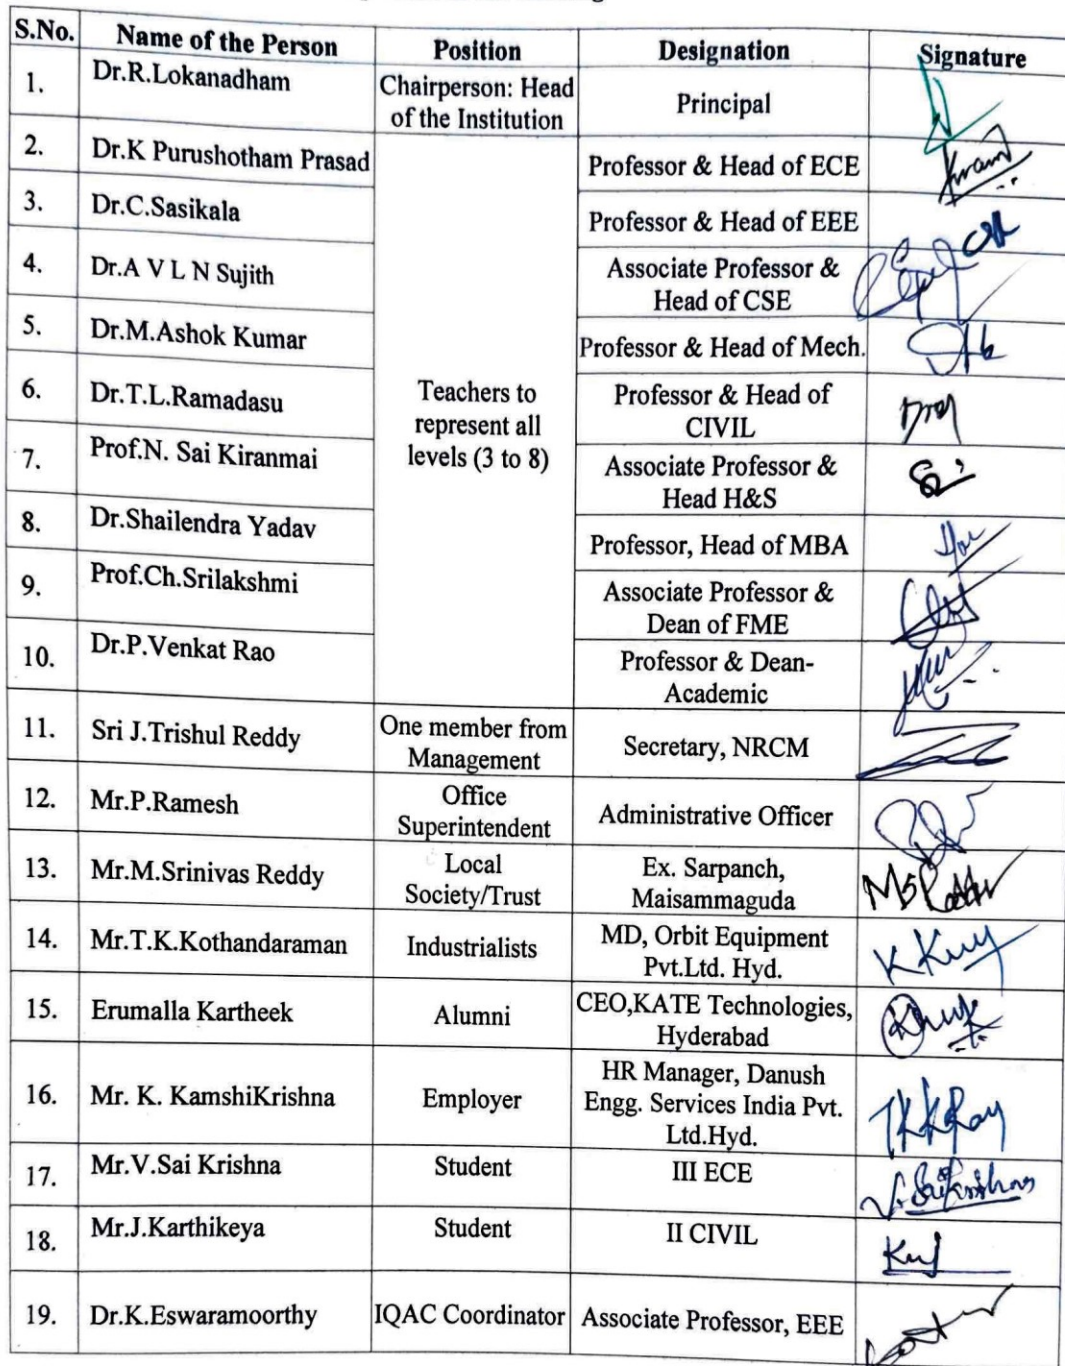 S.No. Name of the Person Position Designation Signature
1. Dr.R.Lokanadham Chairperson: Head of the Institution Principal
2. Dr.K Purushotham Prasad Professor & Head of ECE
3. Dr.C.Sasikala Professor & Head of EEE
4. Dr.A V L N Sujith Associate Professor & Head of CSE
5. Dr.M.Ashok Kumar Professor & Head of Mech.
6. Dr.T.L.Ramadasu Teachers to represent all levels (3 to 8) Professor & Head of CIVIL
7. Prof.N. Sai Kiranmai Associate Professor & Head H&S
8. Dr.Shailendra Yadav Professor, Head of MBA
9. Prof.Ch.Srilakshmi Associate Professor & Dean of FME
10. Dr.P.Venkat Rao Professor & Dean-Academic
11. Sri J.Trishul Reddy One member from Management Secretary, NRCM
12. Mr.P.Ramesh Office Superintendent Administrative Officer
13. Mr.M.Srinivas Reddy Local Society/Trust Ex. Sarpanch, Maisammaguda
14. Mr.T.K.Kothandaraman Industrialists MD, Orbit Equipment Pvt.Ltd. Hyd.
15. Erumalla Kartheek Alumni CEO,KATE Technologies, Hyderabad
16. Mr. K. KamshiKrishna Employer HR Manager, Danush Engg. Services India Pvt. Ltd.Hyd.
17. Mr.V.Sai Krishna Student III ECE
18. Mr.J.Karthikeya Student II CIVIL
19. Dr.K.Eswaramoorthy IQAC Coordinator Associate Professor, EEE